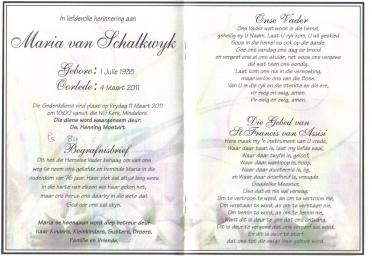 In liefdevolle herinnering aan
Maria van Schalkwyk
Gebore: 1 Julie 1935
Oorlede: 4 Maart 2011
Die Gedenkdiens vind plaas op Vrydag 11 Maart 2011
om 10:00 vanuit die NG Kerk, Mindalore.
Die diens word waargeneem deur:
Ds. Henning Mostert.
Ps
Begrafnisbrief
Dit het die Hemelse Vader behaag om van ons
weg te neem ons geliefde en beminde Maria in die
ouderdom van 76 jaar. Haar plek sal altyd leeg wees
in die harte van diesen wat haar geken het,
maar ons berus ons daarby in die wete dat
God oor ons sal skyn.
Maria se heengaan word diep betreur deur:
haar Kinders, Kleinkinders, Susters, Broers,
Familie en Vriende.
Onse Vader
Ons Vader wat woon in die hemel,
geheilig sy U Naam. Laat U ryk kom, U wil geskied
Soos in die hemel so ook op die aarde.
Gee ons vandag ons dag se brood
en vergeef ons al ons skulde, net soos ons vergewe
dié wat teen ons sondig.
Laat kom ons nie in die versoeking,
maar verlos ons van die Bose.
Van U is die ryk en die sterkte en die eer,
vir ewig en ewig, amen.
Vir ewig en ewig, amen.
Die Gebed van
St Francis van Assisi
Here maak my 'n instrument van U vrede,
Waar daar haat is, laat my liefde saai,
Waar daar twyfel is, geloof,
Waar daar wanhoop is, hoop,
Waar daar duisternis is, lig,
en Waar daar droefheid is, vreugde.
Goddelike Meester,
Gee dat ek nie sal vermag,
Om te vertroos te word, as om te vertroos nie,
Om verstaan te word, as om te verstaan nie,
Om bemin te word, as om te bemin nie,
Want dit is deur te gee dat ons ontvang,
Dit is deur te vergewe dat ons vergewe sal word,
En dit is deur te sterf
dat ons tot die ewige lewe gebore word.